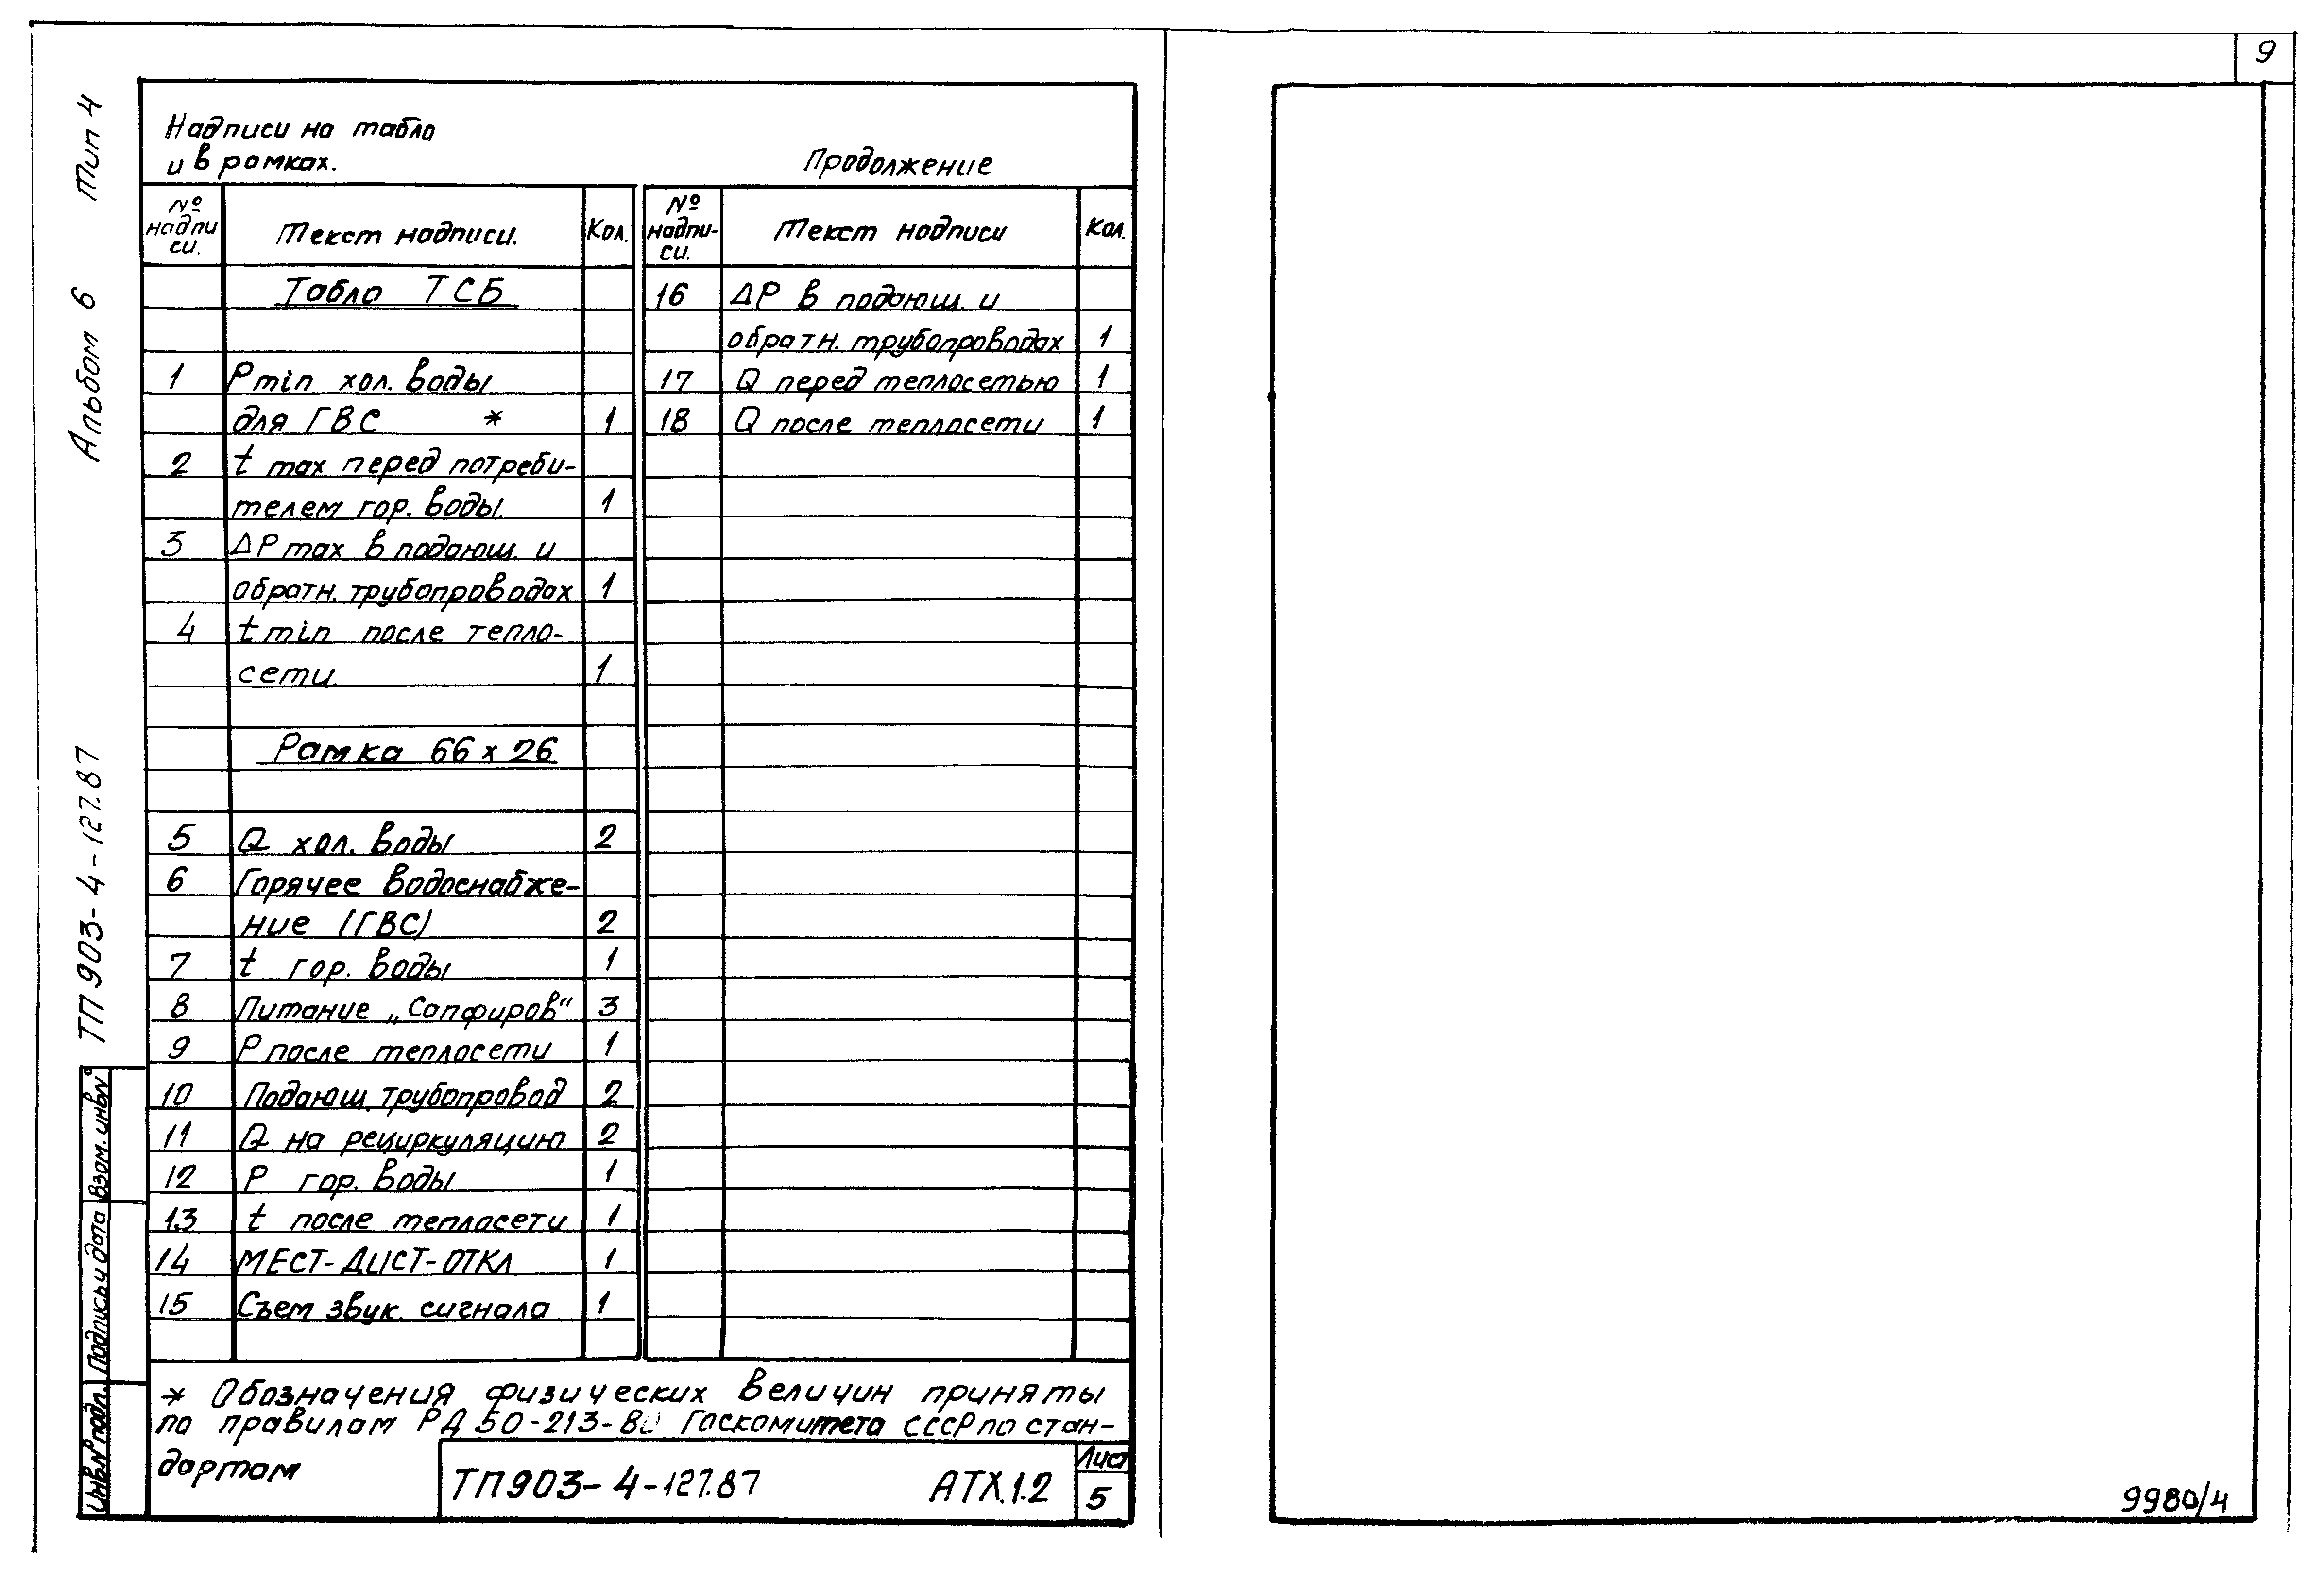 9
Тип 4
Альбом 6
ТП 903-4-127.87
Надписи на табло
и в рамках.
Продолжение
№ надпи си. Текст надписи. Кол.
Табло ТСБ
1 Pmin хол. воды
для ГВС * 1
2 t max перед потреби-
телем гор. воды. 1
3 ΔP max в подающ. и
обратн. трубопроводах 1
4 t min после тепло-
сети. 1
Рамка 66 х 26
5 Q хол. воды 2
6 Горячее водоснабже-
ние (ГВС) 2
7 t гор. воды 1
8 Питание „Сапфиров“ 3
9 P после теплосети 1
10 Подающ. трубопровод 2
11 Q на рециркуляцию 2
12 P гор. воды 1
13 t после теплосети 1
14 МЕСТ-ДИСТ-ОТКЛ 1
15 Съем звук. сигнала 1
№ надпи- си. Текст надписи Кол.
16 ΔP в подающ. и
обратн. трубопроводах 1
17 Q перед теплосетью 1
18 Q после теплосети 1
* Обозначения физических величин приняты
по правилам РД 50-213-80 Госкомитета СССР по стан-
дартам
ТП 903-4-127.87 АТХ.1.2
Лист
5
Взам. инв №
Подпись и дата
Инв. № подл.
9980/4